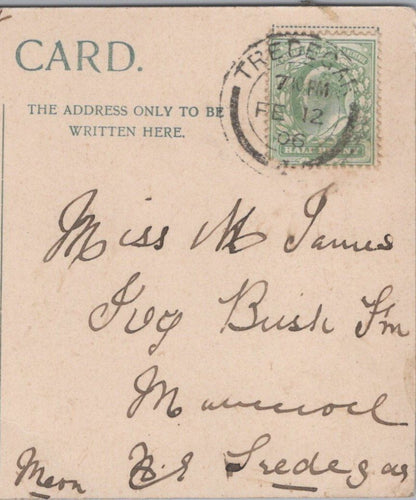 CARD.
THE ADDRESS ONLY TO BE
WRITTEN HERE.
TREDEGAR
7 PM
FE 12
06
HALFPENNY
Miss M James
Ivy Bush Fm
Nr Tredegar
Mon